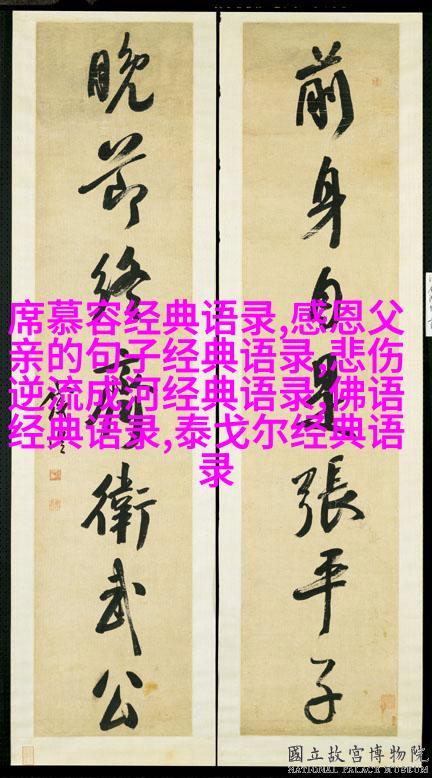 前身自張平子
晚節終齊衛武公
席慕容经典语录,感恩父
亲的句子经典语录,悲伤
逆流成河经典语录,佛语
经典语录,泰戈尔经典语
录
國立故宮博物院
NATIONAL PALACE MUSEUM